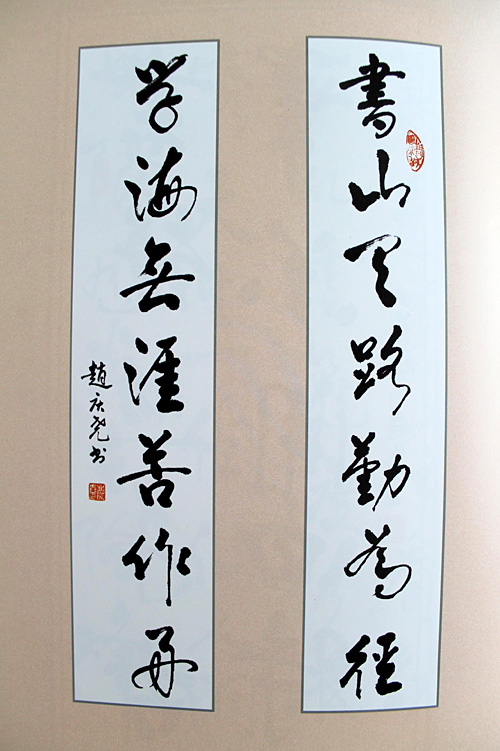 書山有路勤為徑
学海無涯苦作舟
趙庆尧书